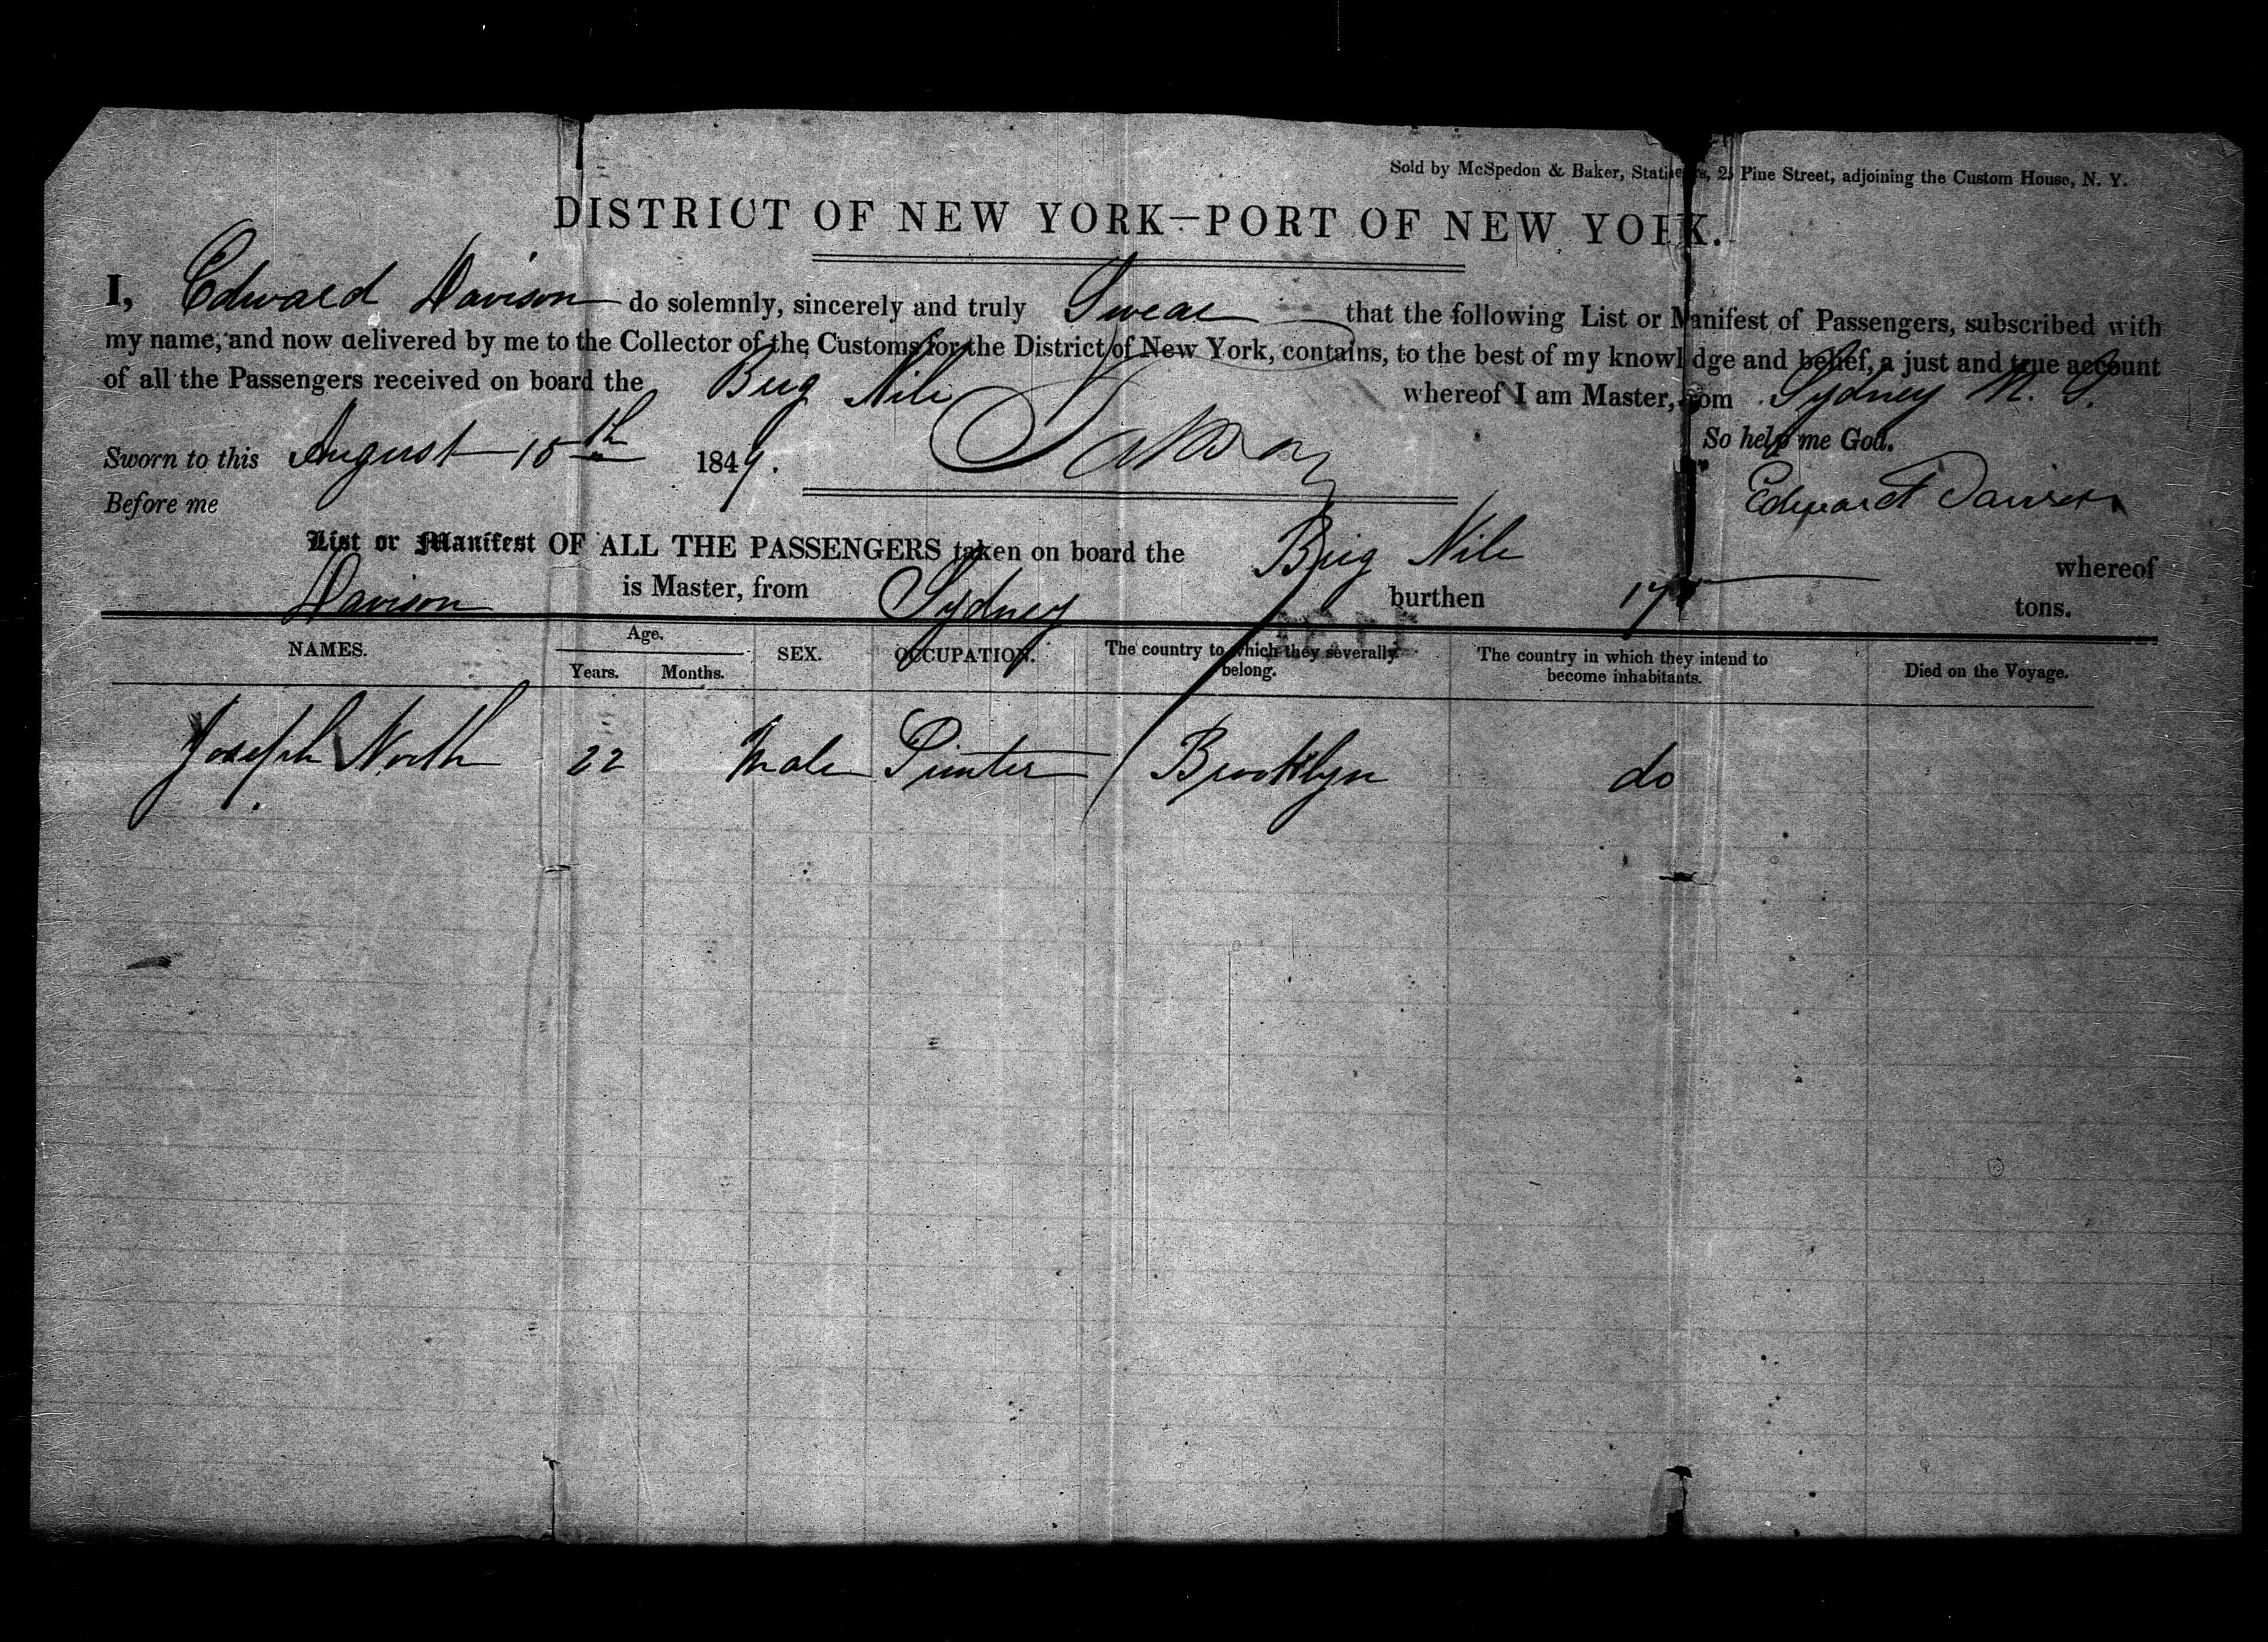 Sold by McSpedon & Baker, Stationers, 25 Pine Street, adjoining the Custom House, N. Y.
DISTRICT OF NEW YORK—PORT OF NEW YORK.
I, Edward Davison do solemnly, sincerely and truly Swear that the following List or Manifest of Passengers, subscribed with
my name, and now delivered by me to the Collector of the Customs for the District of New York, contains, to the best of my knowledge and belief, a just and true account
of all the Passengers received on board the Brig Nile whereof I am Master, from Sydney N. S.
So help me God.
Sworn to this August 15th 1849.
Edward Davison
Before me
List or Manifest OF ALL THE PASSENGERS taken on board the Brig Nile whereof
Davison is Master, from Sydney burthen tons.
NAMES. Age. SEX. OCCUPATION. The country to which they severally belong. The country in which they intend to become inhabitants. Died on the Voyage.
Years. Months.
Joseph North 22 Male Printer Brooklyn do